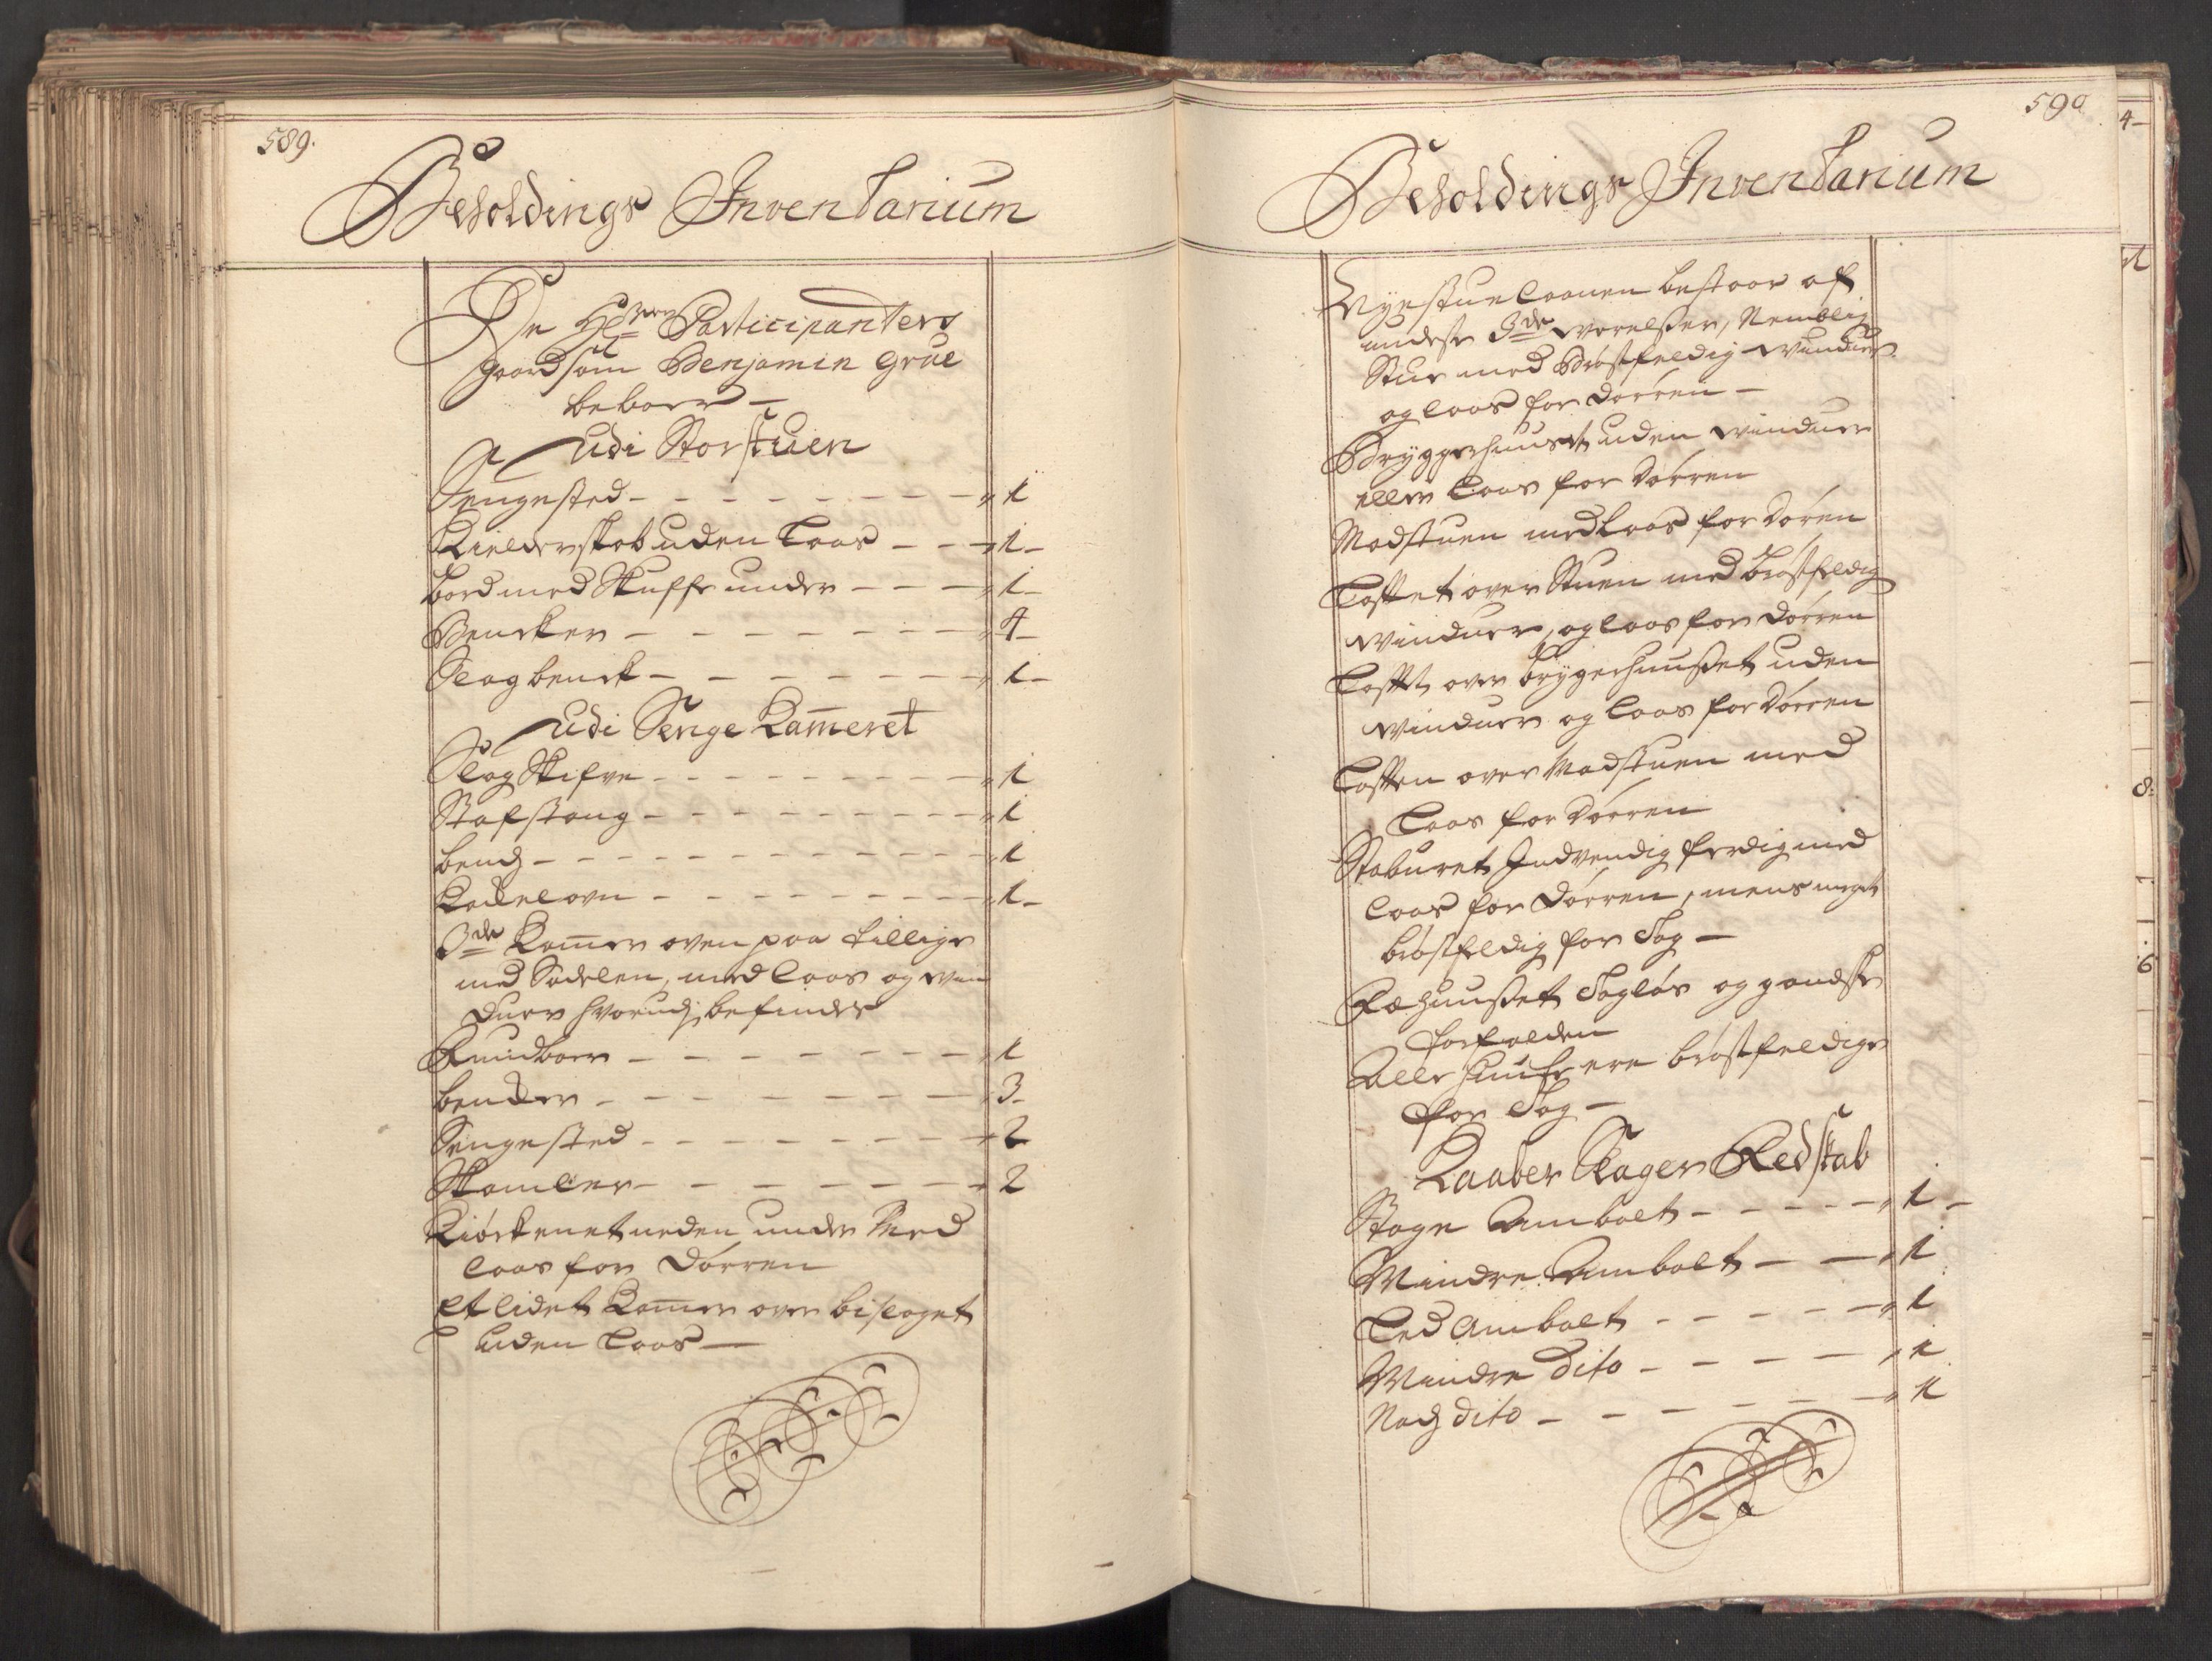 589.
Beholdings Inventarium
De Hl: Herrer Participanters
Gaard som Benjamin Grue
beboer —
Udi Storstuen
Sengested - - - - - - - - 1
Kielderskab uden Laas - - - 1 -
bord med Skuffe under - - - 1 -
Bencker - - - - - - - 4 -
Slagbenck - - - - - - - 1 -
Udi Senge Kam̄eret
Slag Skifve - - - - - - - 1
Stafstang - - - - - - - - 1
bench - - - - - - - - - 1
Kackelovn - - - - - - - - 1 -
3de Kam̄er oven paa tillige
med Sadelen, med Laas og win
duer hvorudj befindes
Rundbore - - - - - - - 1
bencker - - - - - - - 3 -
Sengested - - - - - - - 2
Skamler - - - - - - - 2
Kiøckenet neden under Med
Laas for Dørren
Et lidet Kam̄er over bislaget
uden Laas —
590
Beholdings Inventarium
Nyestuelaanen bestaar af
underste 3de worelsser, Nemblig
Stue med Brøstfeldig winduer
og laas for dørren —
Bryggerhuuset uden winduer
eller Laas for Dørren
Madstuen med Laas for Døren
Lofftet over Stuen med brøstfeldig
winduer, og laas for dørren
Lofftet over brygerhuusset uden
winduer og Laas for Dørren
Lofften over Madstuen med
Laas for Dørren
Staburet Indvendig ferdig med
Laas for Dørren, mens meget
brøstfeldig for Tag —
Fæhuusset Tagløs og gandske
forfalden
Alle Huuse ere brøstfeldige
for Tag —
Kaaber Slager Redskab
Stage Ambolt - - - - - 1 -
Mindre Ambolt - - - 1
Led Ambolt - - - - - 1
Mindre Dito - - - - - 1
Noch dito - - - - - - 1
4 -
1
8:
7
6